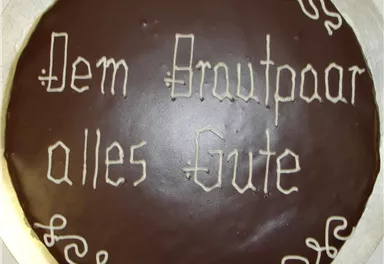 Dem Brautpaar
alles Gute